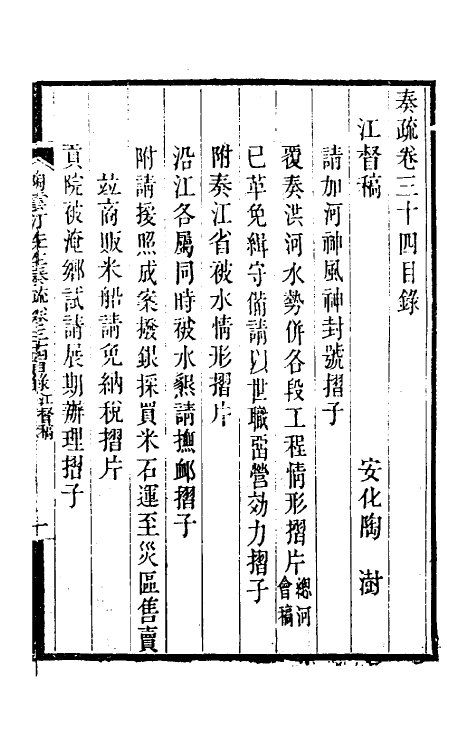 奏疏卷三十四目錄
江督稿　安化陶　澍
請加河神風神封號摺子
覆奏洪河水勢併各段工程情形摺片總河會稿
已革免緝守備請以世職留營効力摺子
附奏江省被水情形摺片
沿江各屬同時被水懇請撫卹摺子
附請援照成案撥銀採買米石運至災區售賣
竝商販米船請免納稅摺片
貢院被淹鄉試請展期辦理摺子
陶雲汀先生奏疏　卷三十四目錄江督稿　一